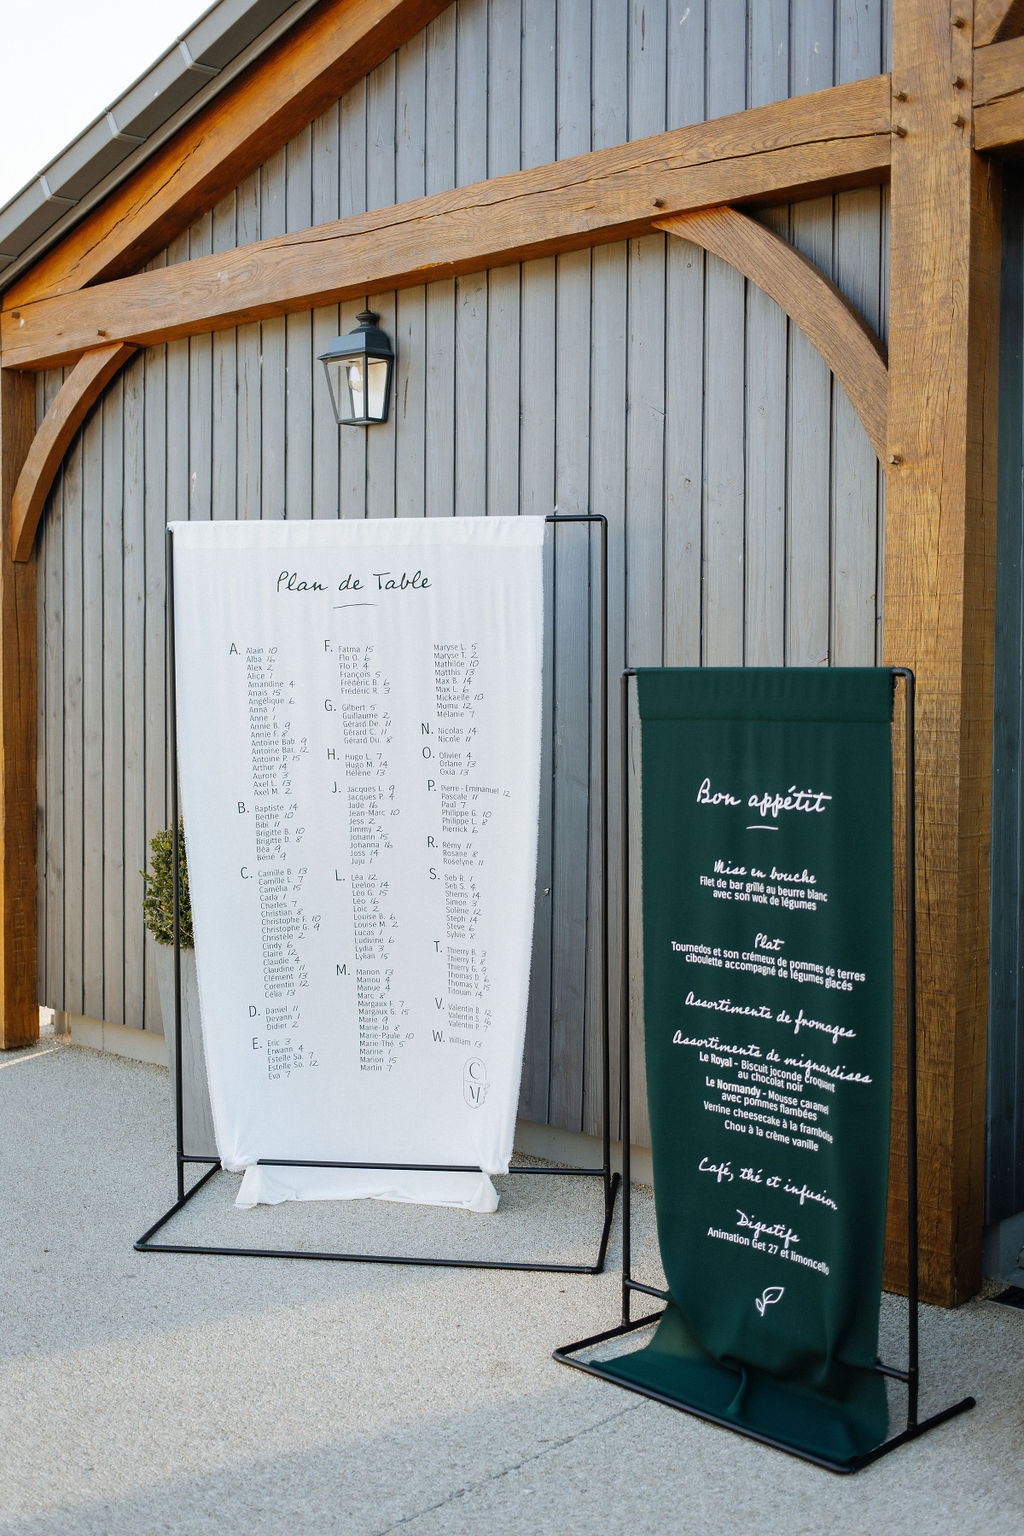 Plan de Table
A. Alain 10
Alba 16
Alex 2
Alice 1
Amandine 4
Anaïs 15
Angélique 6
Anna 1
Anne 1
Annie B. 9
Annie F. 8
Antoine Bab. 9
Antoine Bar. 12
Antoine P. 15
Arthur 14
Aurore 3
Axel L. 13
Axel M. 2
B. Baptiste 14
Berthe 10
Bibi 11
Brigitte B. 10
Brigitte D. 8
Béa 9
Béné 9
C. Camille B. 13
Camille L. 7
Camélia 15
Carla 1
Charles 7
Christian 8
Christophe F. 10
Christophe G. 9
Christèle 2
Cindy 6
Claire 12
Claudie 4
Claudine 11
Clément 13
Corentin 12
Célia 13
D. Daniel 11
Devann 1
Didier 2
E. Eric 3
Erwann 4
Estelle Sa. 7
Estelle So. 12
Eva 7
F. Fatma 15
Flo O. 6
Flo P. 4
François 5
Frédéric B. 6
Frédéric R. 3
G. Gilbert 5
Guillaume 2
Gérard De. 11
Gérard C. 11
Gérard Du. 8
H. Hugo L. 7
Hugo M. 14
Hélène 13
J. Jacques L. 9
Jacques P. 4
Jade 16
Jean-Marc 10
Jess 2
Jimmy 2
Johann 15
Johanna 16
Joss 14
Juju 1
L. Léa 12
Leeloo 14
Léo G. 15
Léo 16
Loïc 2
Louise B. 6
Louise M. 2
Lucas 1
Ludivine 6
Lydia 3
Lylian 15
M. Manon 13
Manou 4
Manue 4
Marc 8
Margaux F. 7
Margaux G. 15
Marie 9
Marie-Jo 8
Marie-Paule 10
Marie-Thé 5
Marine 1
Marion 15
Martin 7
Maryse L. 5
Maryse T. 2
Mathilde 10
Matthis 13
Max B. 14
Max L. 6
Mickaelle 10
Mumu 12
Mélanie 7
N. Nicolas 14
Nicole 11
O. Olivier 4
Orlane 13
Oxia 13
P. Pierre - Emmanuel 12
Pascale 11
Paul 7
Philippe G. 10
Philippe L. 8
Pierrick 6
R. Rémy 11
Rosane 8
Roselyne 11
S. Seb R. 1
Seb S. 4
Shems 14
Simon 3
Solène 12
Steph 14
Steve 6
Sylvie 8
T. Thierry B. 3
Thierry F. 8
Thierry G. 9
Thomas D. 6
Thomas V. 15
Titouan 14
V. Valentin B. 12
Valentin S. 16
Valentin P. 7
W. William 13
C
M
Bon appétit
Mise en bouche
Filet de bar grillé au beurre blanc
avec son wok de légumes
Plat
Tournedos et son crémeux de pommes de terres
ciboulette accompagné de légumes glacés
Assortiments de fromages
Assortiments de mignardises
Le Royal - Biscuit joconde croquant
au chocolat noir
Le Normandy - Mousse caramel
avec pommes flambées
Verrine cheesecake à la framboise
Chou à la crème vanille
Café, thé et infusion
Digestifs
Animation Get 27 et limoncello